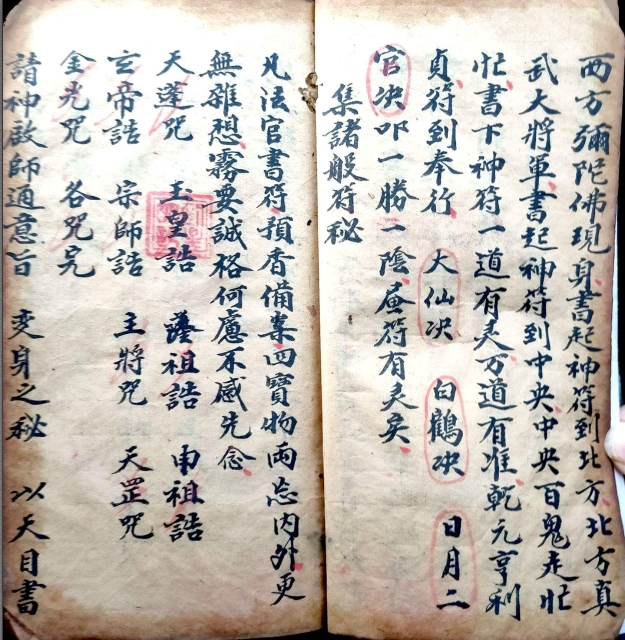 西方彌陀佛現身書起神符到北方北方真
武大將軍書起神符到中央中央百鬼走忙
忙書下神符一道有灵万道有准乾元亨利
貞符到奉行 大仙决 白鶴决 日月二
官决 吅一勝二陰 符有灵矣
集諸般符秘
凡法官書符預香備案四寶物両忘内外更
無雜想霧要誠格何慮不感先念
天蓬咒 玉皇誥 薩祖誥 申祖誥
玄帝誥 宗師誥 主將咒 天罡咒
金光咒 各咒完
請神啟師通意旨 变身之秘 以天目書